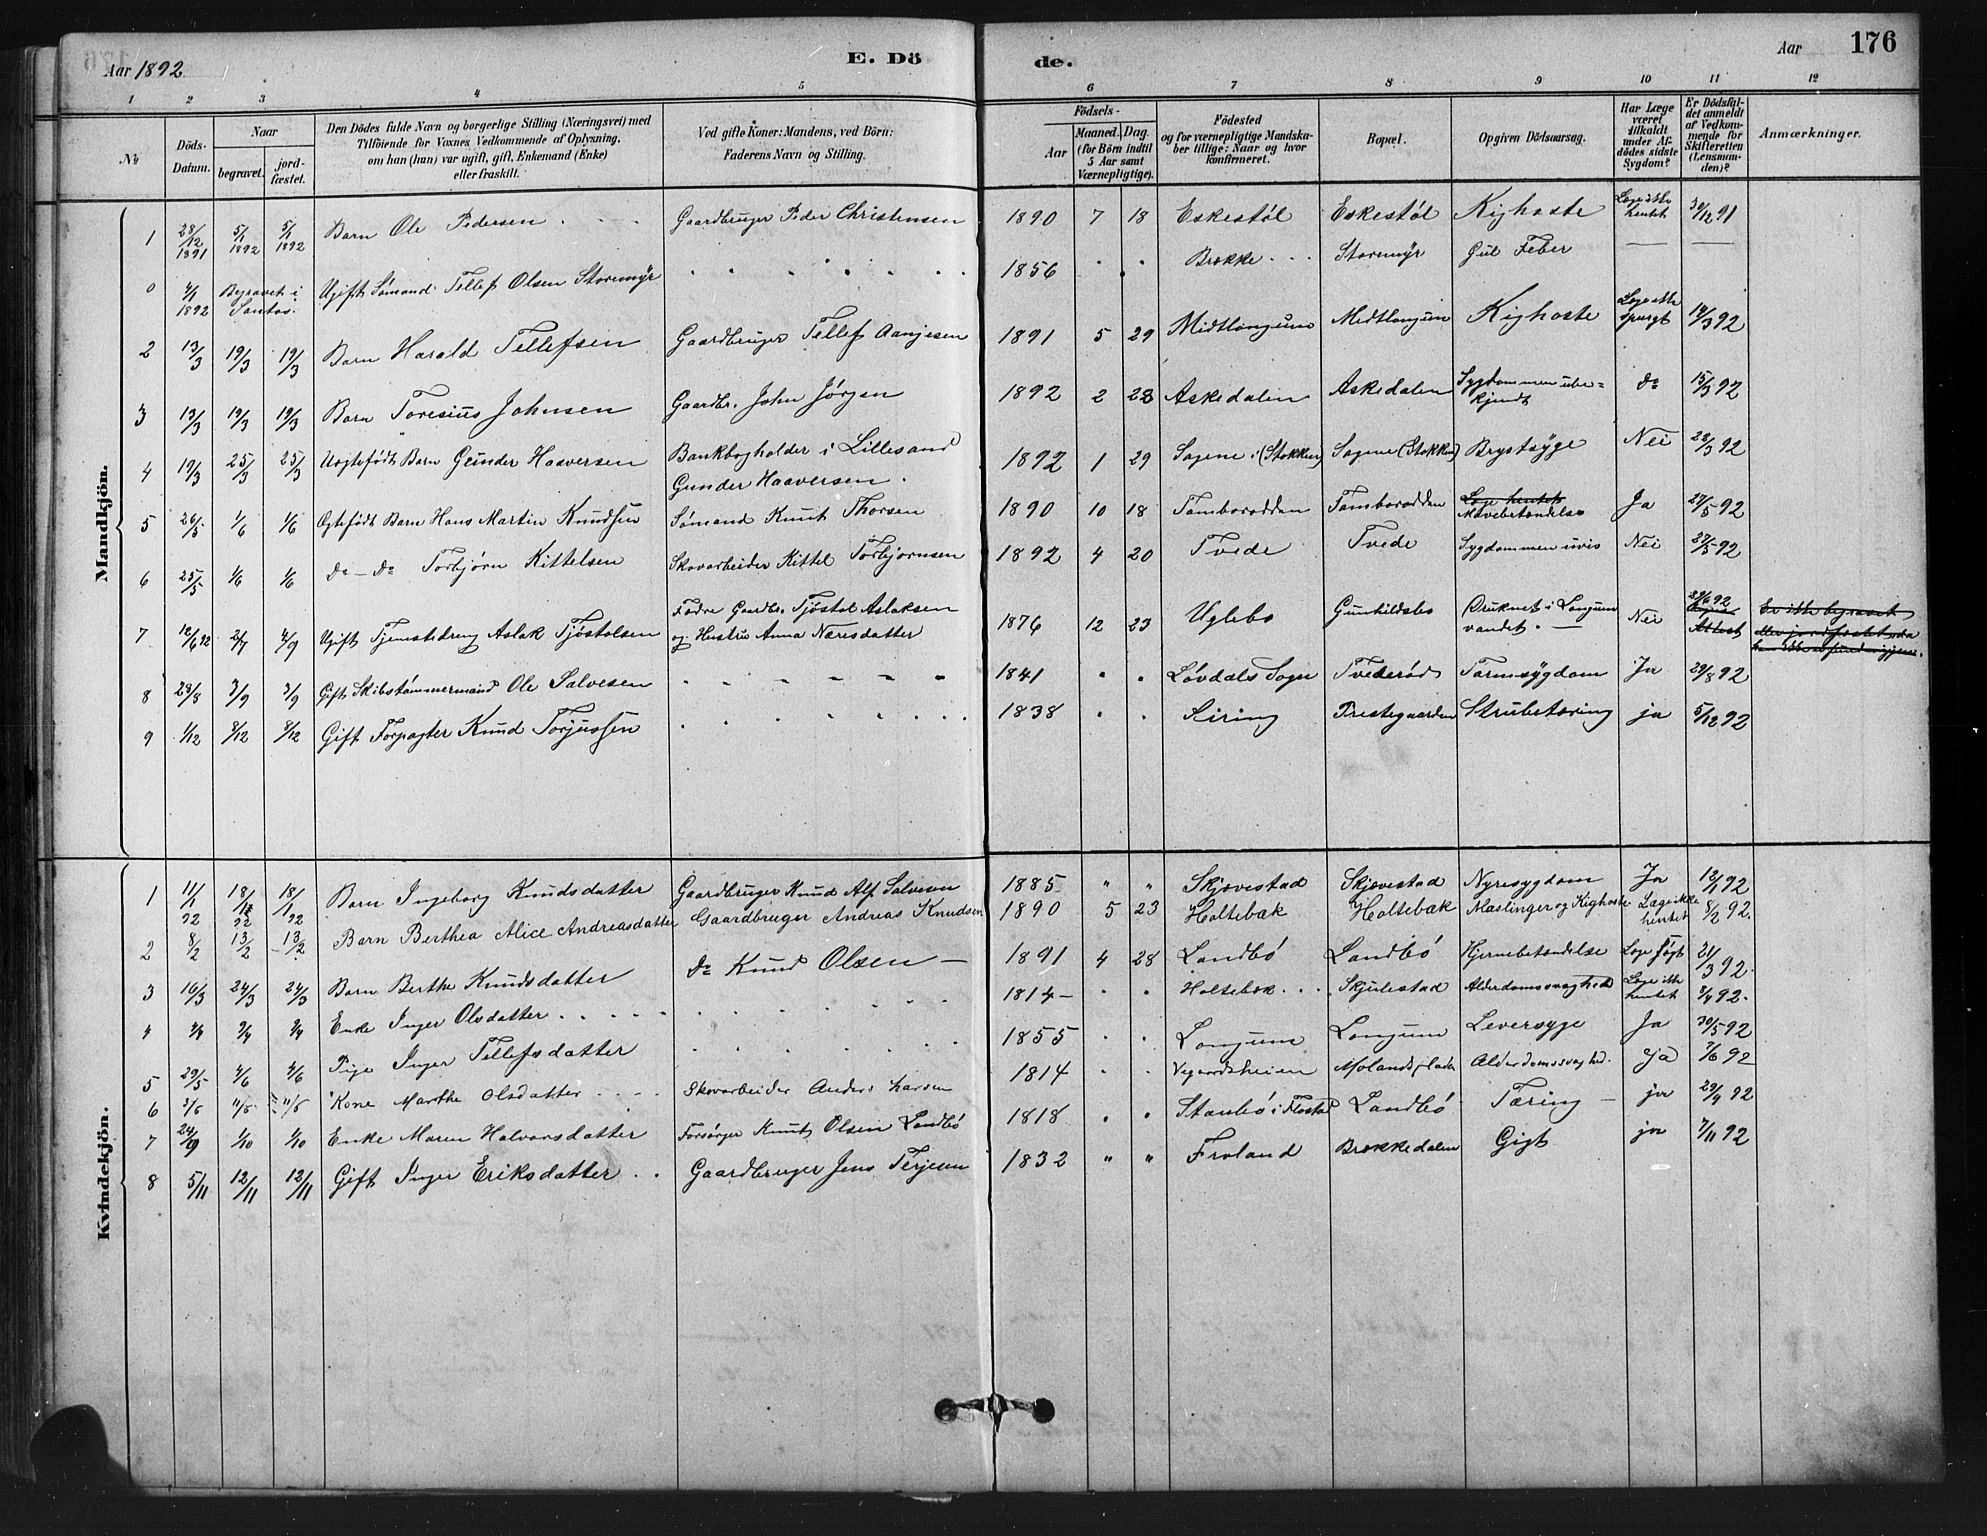 Aar 1892
E. Dö
de.
Aar
176
1 2 3 4 5 6 7 8 9 10 11 12
№
Döds-
Datum.
Naar
begravet.
jord-
fæstet.
Den Dödes fulde Navn og borgerlige Stilling (Næringsvei) med
Tilföiende for Voxnes Vedkommende af Oplysning,
om han (hun) var ugift, gift, Enkemand (Enke)
eller fraskilt.
Ved gifte Koner: Mandens, ved Börn:
Faderens Navn og Stilling.
Födsels-
Aar
Maaned. Dag.
(for Börn indtil
5 Aar samt
Værnepligtige).
Födested
og for værnepligtige Mandska-
ber tillige: Naar og hvor
konfirmeret.
Bopæl.
Opgiven Dödsaarsag.
Har Læge
været
tilkaldt
under Af-
dödes sidste
Sygdom?
Er Dödsfal-
det anmeldt
af Vedkom-
mende for
Skifteretten
(Lensman-
den)?
Anmærkninger.
Mandkjön.
1 28/12 1891 5/1 1892 5/1 1892 Barn Ole Pedersen Gaardbruger Peder Christensen 1890 7 18 Eskestøl Eskestøl Kighoste Læge ikke hentet 30/12 91
0 4/1 1892 Begravet i Santos. Ugift Sømand Tellef Olsen Storemyr 1856 " " Brække Storemyr Gul Feber
2 13/3 19/3 19/3 Barn Harald Tellefsen Gaardbruger Tellef Aanjesen 1891 5 29 Midtlongum Midtlongum Kighoste Læge ikke spurgt 14/3 92
3 13/3 19/3 19/3 Barn Toresius Johnsen Gaardbr. John Jørgen 1892 2 23 Askedalen Askedalen Sygdommen ube-kjendt do 15/3 92
4 19/3 25/3 25/3 Uægtefødt Barn Gunder Haaversen Bankbogholder i Lillesand
Gunder Haaversen. 1892 1 29 Sagene i (Stokken) Sagene (Stokken) Brystsyge Nei 22/3 92
5 26/5 1/6 1/6 Ægtefødt Barn Hans Martin Knudsen Sømand Knut Thorsen 1890 10 18 Tamborodden Tamborodden Læge hentet Mavebetændelse Ja 27/5 92
6 25/5 1/6 1/6 do - do Torbjørn Kittelsen Skovarbeider Kittel Torbjornsen 1892 4 20 Tvede Tvede Sygdommen uvis Nei 27/5 92
7 12/6 92 2/7 4/9 Ugift Tjenestedreng Aslak Tjøstolsen Fædre Gaardbr. Tjøstol Aslaksen
og Hustru Anna Næresdatter 1876 12 23 Uglebo Gunhildsbo Druknet i Longum vandet. Nei 29/6 92 Attest Er ikke begravet
eller jordfæstet, da
8 28/8 3/9 3/9 Gift Skibstømmermand Ole Salvesen 1841 " " Løvdals Sogn Tvederød Tarmsygdom Ja 29/8 92
9 1/12 8/12 8/12 Gift Forpagter Knud Torjussen 1838 " " Kiring Prestegaarden Strubetæring ja 5/12 92
Kvindekjön.
1 11/1 92 18/1 92 18/1 92 Barn Ingeborg Knudsdatter Gaardbruger Knud Alf Salvesen 1885 " " Skjævestad Skjævestad Nyresygdom Ja 12/1 92
2 8/2 13/2 13/2 Barn Berthea Alice Andreasdatter Gaardbruger Andreas Knudsen 1890 5 23 Holtebæk Holtebæk Mæslinger og Kighoste Læge ikke hentet 8/2 92.
3 16/3 24/3 24/3 Barn Berthe Knudsdatter do Knud Olsen 1891 4 28 Landbö Landbö Hjernebetændelse Læge søgt 21/3 92.
4 2/4 9/4 9/4 Enke Inger Olsdatter 1814 " " Holtebæk Skjulestad Alderdomssvaghed Læge ikke hentet 8/4 92.
5 29/5 4/6 4/6 Pige Inger Tellefsdatter 1855 " " Longum Longum Leversyge Ja 30/5 92
6 3/6 11/6 11/6 Kone Marthe Olsdatter Skovarbeider Anders Larsen 1814 " " Vegardsheien Molands pladsen Alderdomssvaghed. Ja 7/6 92
7 24/9 1/10 1/10 Enke Maren Halvorsdatter Forsørger Knut Olsen Landbö 1818 " " Staubö i Flostad Landbö Tæring ja 29/9 92
8 5/11 12/11 12/11 Gift Inger Eriksdatter Gaardbruger Jens Terjesen 1832 " " Froland Brækkedalen Gigt ja 7/11 92